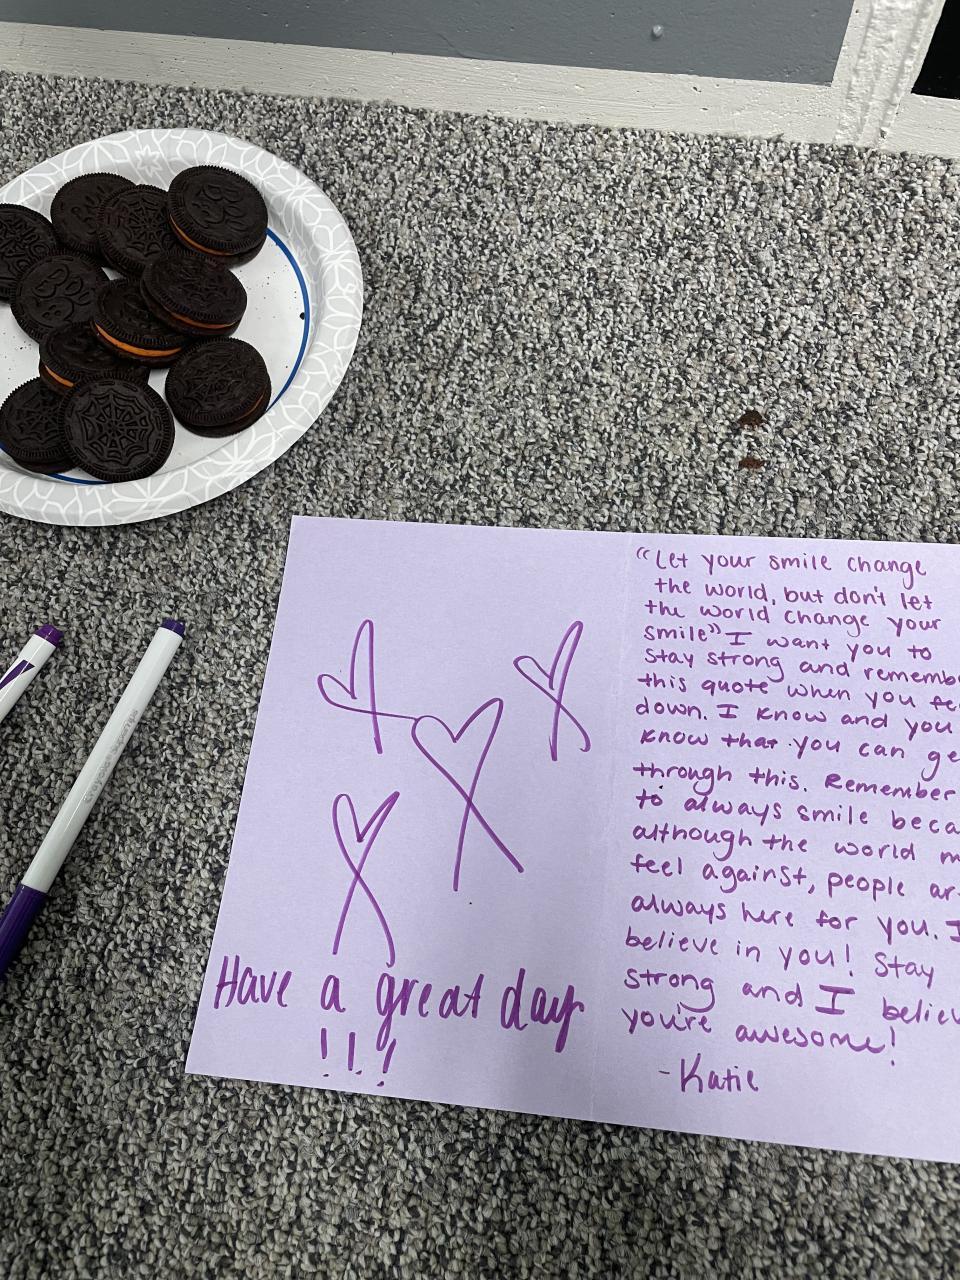 Have a great day
!!!
"Let your smile change
the world, but don't let
the world change your
smile" I want you to
stay strong and
this quote when you
down. I know and you
know that you can
through this. Remember
to always smile
although the world
feel against, people
always here for you. I
believe in you! Stay
strong and I
you're awesome!
-Katie
BOO